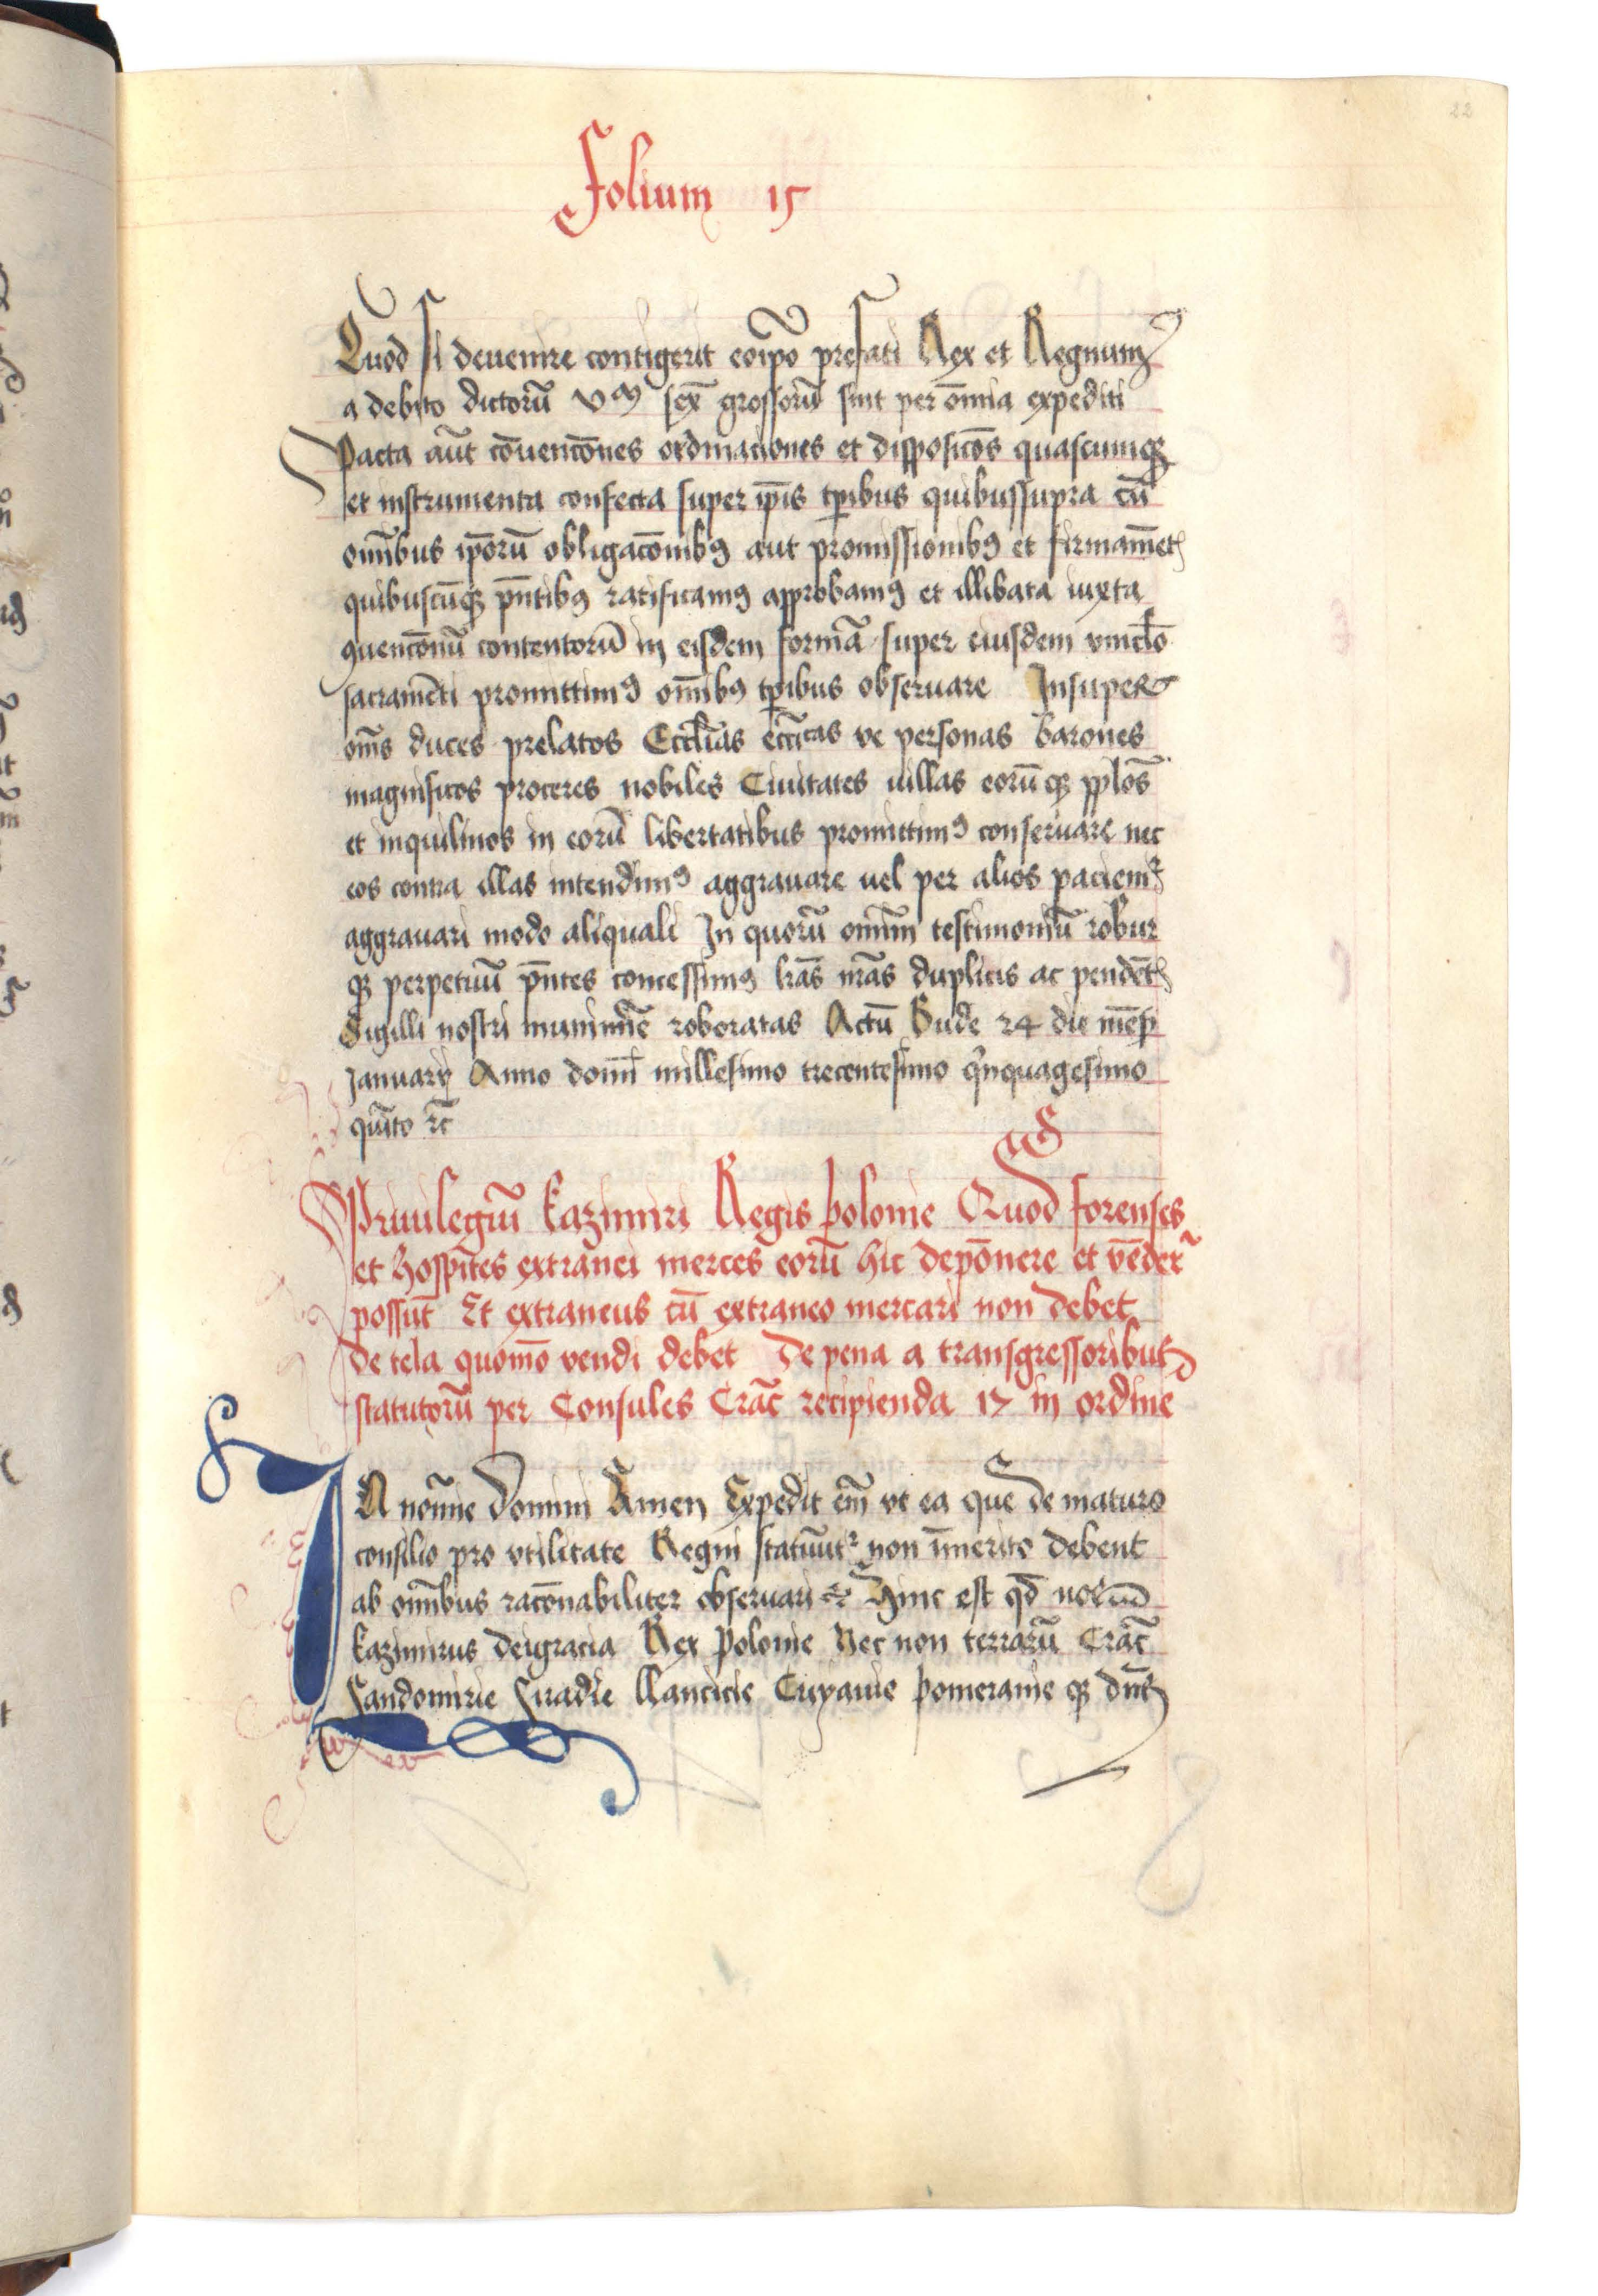 22
Folium 15
Quod si deuenire contigerit eoip̄o prefati Rex et Regnum
a debito dictorū Vm sex̄ grossorū sint per om̄ia expediti
Pacta aūt cōuencōnes ordinationes et disposicōs quascumqꝫ
et instrumenta confecta super ip̄is tp̄ibus quibussupra cū
om̄ibus ip̄orū obligacōnibꝫ aut promissionibꝫ et firmamēt
quibuscūqꝫ pn̄tibꝫ ratificamꝰ approbamꝰ et illibata iuxta
ꝯuencōnū contentorū in eisdem formā super eiusdem vinclo
sacramēti promittimꝰ om̄ibꝫ tp̄ibus obseruare Insuper
om̄s duces prelatos Eccl̄ias eccī̄cas ve personas barones
magnificos proceres nobiles Ciuitates uillas eorūqꝫ pp̄los
et inquilinos in eorū libertatibus promittimꝰ conseruare nec
eos contra illas intendimꝰ aggrauare uel per alios paciemꝰ
aggrauari modo aliquali In quorū om̄im testimoniū robur
qꝫ perpetuū pn̄tes concessimꝰ lr̄as nr̄as duplicis ac pendēt
Sigilli nostri munimīe roboratas Actū Bude 24 die mēs
Januarij Anno domī millesimo trecentesimo q̄nquagesimo
quīto ꝛc̄
Priuilegiū Kazimiri Regis polonie Quod forenses
et hospites extranei merces eorū hic deponere et vēder̄
possūt Et extraneus cū extraneo mercari non debet
de tela quomō vendi debet De pena a transgressoribus
statutorū per Consules Crac̄ recipienda 17 in ordine
IN nomīe Domini Amen Expedit em̄ vt ea que de maturo
consilio pro vtilitate Regni statuūtr non īmerito debent
ab om̄ibus racōnabiliter obseruari ꝛc Hinc est qd̄ nos
kazimirus deigracia Rex polonie Nec non terrarū Crac̄
Sandomirie Siradie llancicie Cuyauie pomeranie qꝫ dn̄s